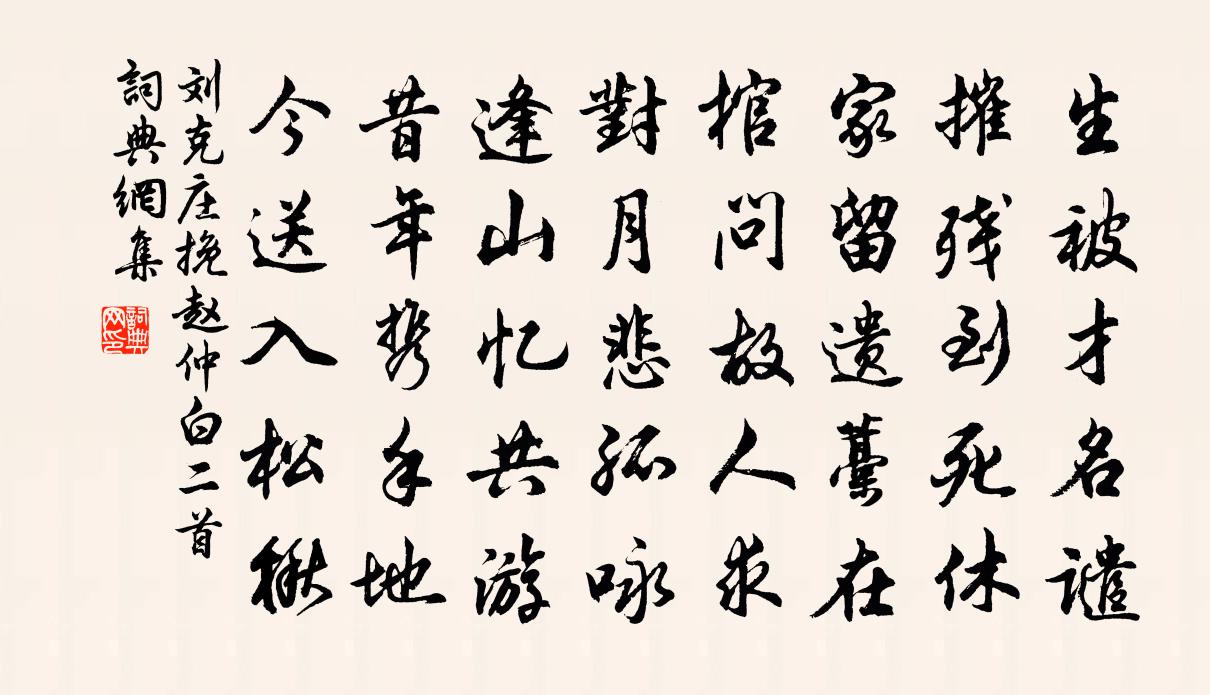 生被才名谴
摧残到死休
家留遗藁在
棺问故人求
對月悲孤咏
逢山忆共游
昔年携手地
今送入松楸
刘克庄挽赵仲白二首
詞典網集
詞典网印